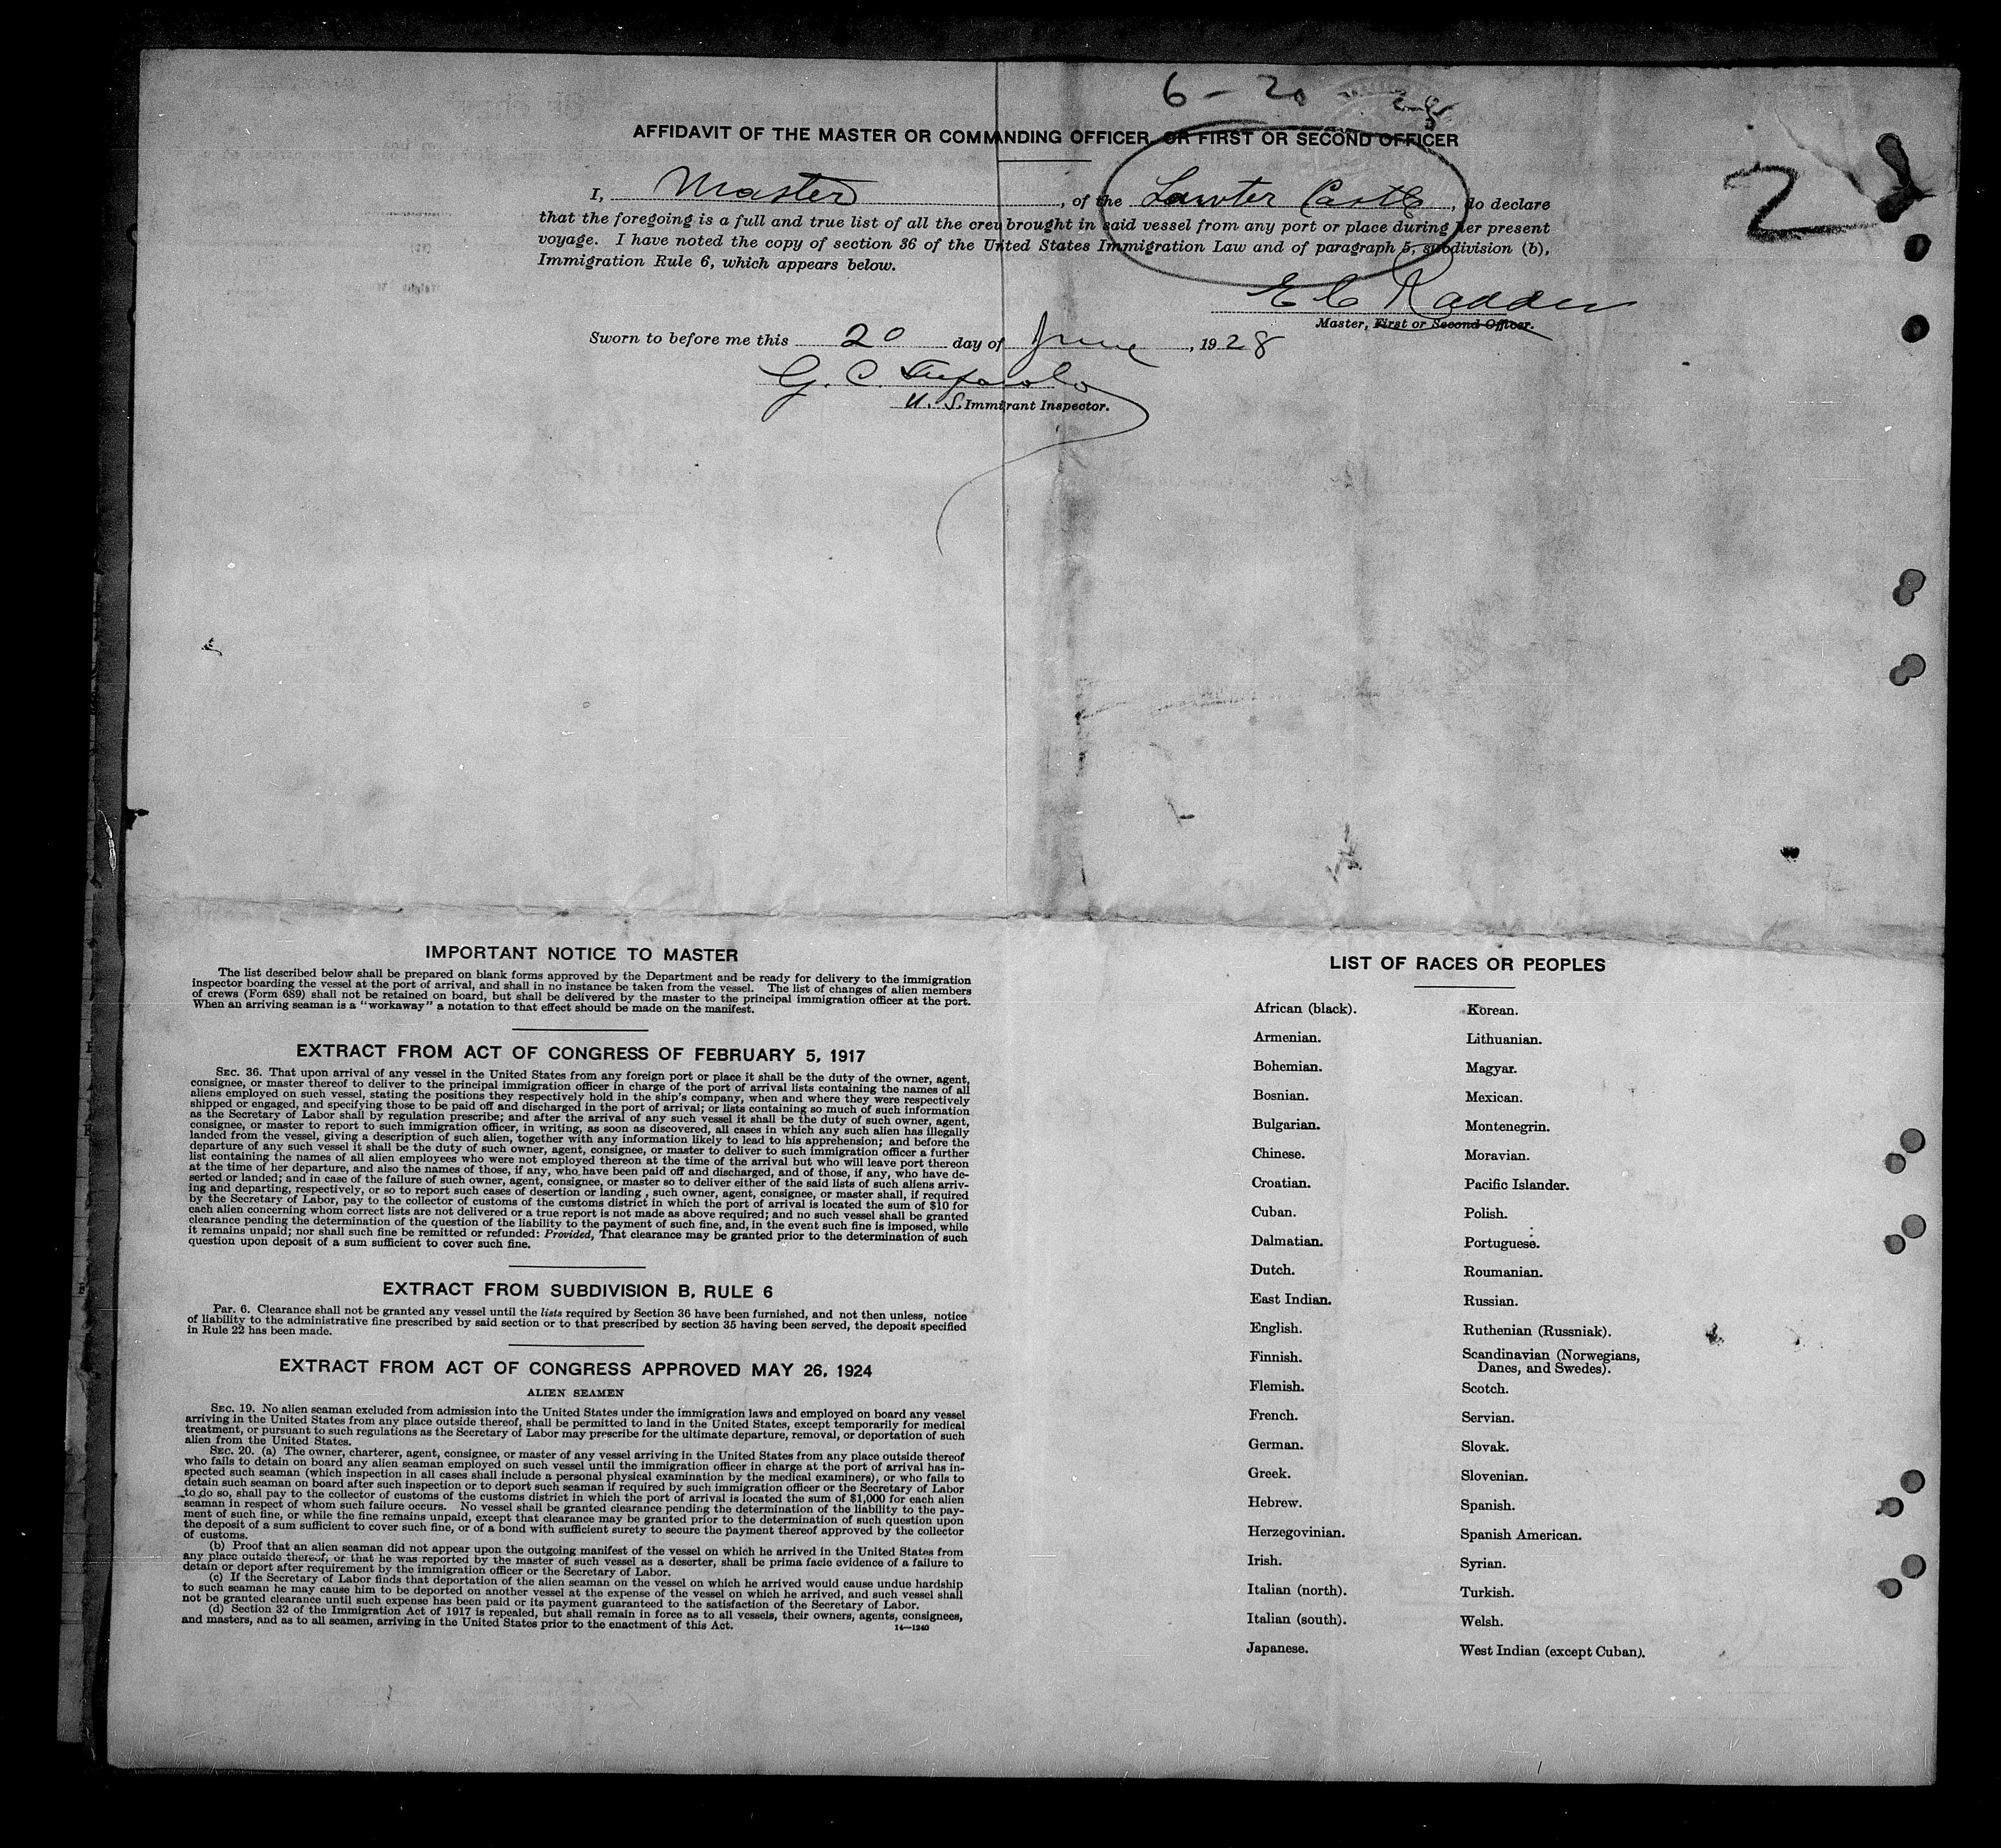 6 - 20 - 28
AFFIDAVIT OF THE MASTER OR COMMANDING OFFICER, OR FIRST OR SECOND OFFICER
2
I, Master, of the Lawter Castle, do declare
that the foregoing is a full and true list of all the crew brought in said vessel from any port or place during her present
voyage. I have noted the copy of section 36 of the United States Immigration Law and of paragraph 5, subdivision (b),
Immigration Rule 6, which appears below.
E C Radder
Master, First or Second Officer.
Sworn to before me this 20 day of June, 1928
G. C.
U. S. Immigrant Inspector.
IMPORTANT NOTICE TO MASTER
The list described below shall be prepared on blank forms approved by the Department and be ready for delivery to the immigration
inspector boarding the vessel at the port of arrival, and shall in no instance be taken from the vessel. The list of changes of alien members
of crews (Form 689) shall not be retained on board, but shall be delivered by the master to the principal immigration officer at the port.
When an arriving seaman is a "workaway" a notation to that effect should be made on the manifest.
EXTRACT FROM ACT OF CONGRESS OF FEBRUARY 5, 1917
SEC. 36. That upon arrival of any vessel in the United States from any foreign port or place it shall be the duty of the owner, agent,
consignee, or master thereof to deliver to the principal immigration officer in charge of the port of arrival lists containing the names of all
aliens employed on such vessel, stating the positions they respectively hold in the ship's company, when and where they were respectively
shipped or engaged, and specifying those to be paid off and discharged in the port of arrival; or lists containing so much of such information
as the Secretary of Labor shall by regulation prescribe; and after the arrival of any such vessel it shall be the duty of such owner, agent,
consignee, or master to report to such immigration officer, in writing, as soon as discovered, all cases in which any such alien has illegally
landed from the vessel, giving a description of such alien, together with any information likely to lead to his apprehension; and before the
departure of any such vessel it shall be the duty of such owner, agent, consignee, or master to deliver to such immigration officer a further
list containing the names of all alien employees who were not employed thereon at the time of the arrival but who will leave port thereon
at the time of her departure, and also the names of those, if any, who have been paid off and discharged, and of those, if any, who have de-
serted or landed; and in case of the failure of such owner, agent, consignee, or master so to deliver either of the said lists of such aliens arriv-
ing and departing, respectively, or so to report such cases of desertion or landing , such owner, agent, consignee, or master shall, if required
by the Secretary of Labor, pay to the collector of customs of the customs district in which the port of arrival is located the sum of $10 for
each alien concerning whom correct lists are not delivered or a true report is not made as above required; and no such vessel shall be granted
clearance pending the determination of the question of the liability to the payment of such fine, and, in the event such fine is imposed, while
it remains unpaid; nor shall such fine be remitted or refunded: Provided, That clearance may be granted prior to the determination of such
question upon deposit of a sum sufficient to cover such fine.
EXTRACT FROM SUBDIVISION B, RULE 6
Par. 6. Clearance shall not be granted any vessel until the lists required by Section 36 have been furnished, and not then unless, notice
of liability to the administrative fine prescribed by said section or to that prescribed by section 35 having been served, the deposit specified
in Rule 22 has been made.
EXTRACT FROM ACT OF CONGRESS APPROVED MAY 26, 1924
ALIEN SEAMEN
SEC. 19. No alien seaman excluded from admission into the United States under the immigration laws and employed on board any vessel
arriving in the United States from any place outside thereof, shall be permitted to land in the United States, except temporarily for medical
treatment, or pursuant to such regulations as the Secretary of Labor may prescribe for the ultimate departure, removal, or deportation of such
alien from the United States.
SEC. 20. (a) The owner, charterer, agent, consignee, or master of any vessel arriving in the United States from any place outside thereof
who fails to detain on board any alien seaman employed on such vessel until the immigration officer in charge at the port of arrival has in-
spected such seaman (which inspection in all cases shall include a personal physical examination by the medical examiners), or who fails to
detain such seaman on board after such inspection or to deport such seaman if required by such immigration officer or the Secretary of Labor
to do so, shall pay to the collector of customs of the customs district in which the port of arrival is located the sum of $1,000 for each alien
seaman in respect of whom such failure occurs. No vessel shall be granted clearance pending the determination of the liability to the pay-
ment of such fine, or while the fine remains unpaid, except that clearance may be granted prior to the determination of such question upon
the deposit of a sum sufficient to cover such fine, or of a bond with sufficient surety to secure the payment thereof approved by the collector
of customs.
(b) Proof that an alien seaman did not appear upon the outgoing manifest of the vessel on which he arrived in the United States from
any place outside thereof, or that he was reported by the master of such vessel as a deserter, shall be prima facie evidence of a failure to
detain or deport after requirement by the immigration officer or the Secretary of Labor.
(c) If the Secretary of Labor finds that deportation of the alien seaman on the vessel on which he arrived would cause undue hardship
to such seaman he may cause him to be deported on another vessel at the expense of the vessel on which he arrived, and such vessel shall
not be granted clearance until such expense has been paid or its payment guaranteed to the satisfaction of the Secretary of Labor.
(d) Section 32 of the Immigration Act of 1917 is repealed, but shall remain in force as to all vessels, their owners, agents, consignees,
and masters, and as to all seamen, arriving in the United States prior to the enactment of this Act.
14—1240
LIST OF RACES OR PEOPLES
African (black).
Armenian.
Bohemian.
Bosnian.
Bulgarian.
Chinese.
Croatian.
Cuban.
Dalmatian.
Dutch.
East Indian.
English.
Finnish.
Flemish.
French.
German.
Greek.
Hebrew.
Herzegovinian.
Irish.
Italian (north).
Italian (south).
Japanese.
Korean.
Lithuanian.
Magyar.
Mexican.
Montenegrin.
Moravian.
Pacific Islander.
Polish.
Portuguese.
Roumanian.
Russian.
Ruthenian (Russniak).
Scandinavian (Norwegians,
Danes, and Swedes).
Scotch.
Servian.
Slovak.
Slovenian.
Spanish.
Spanish American.
Syrian.
Turkish.
Welsh.
West Indian (except Cuban).